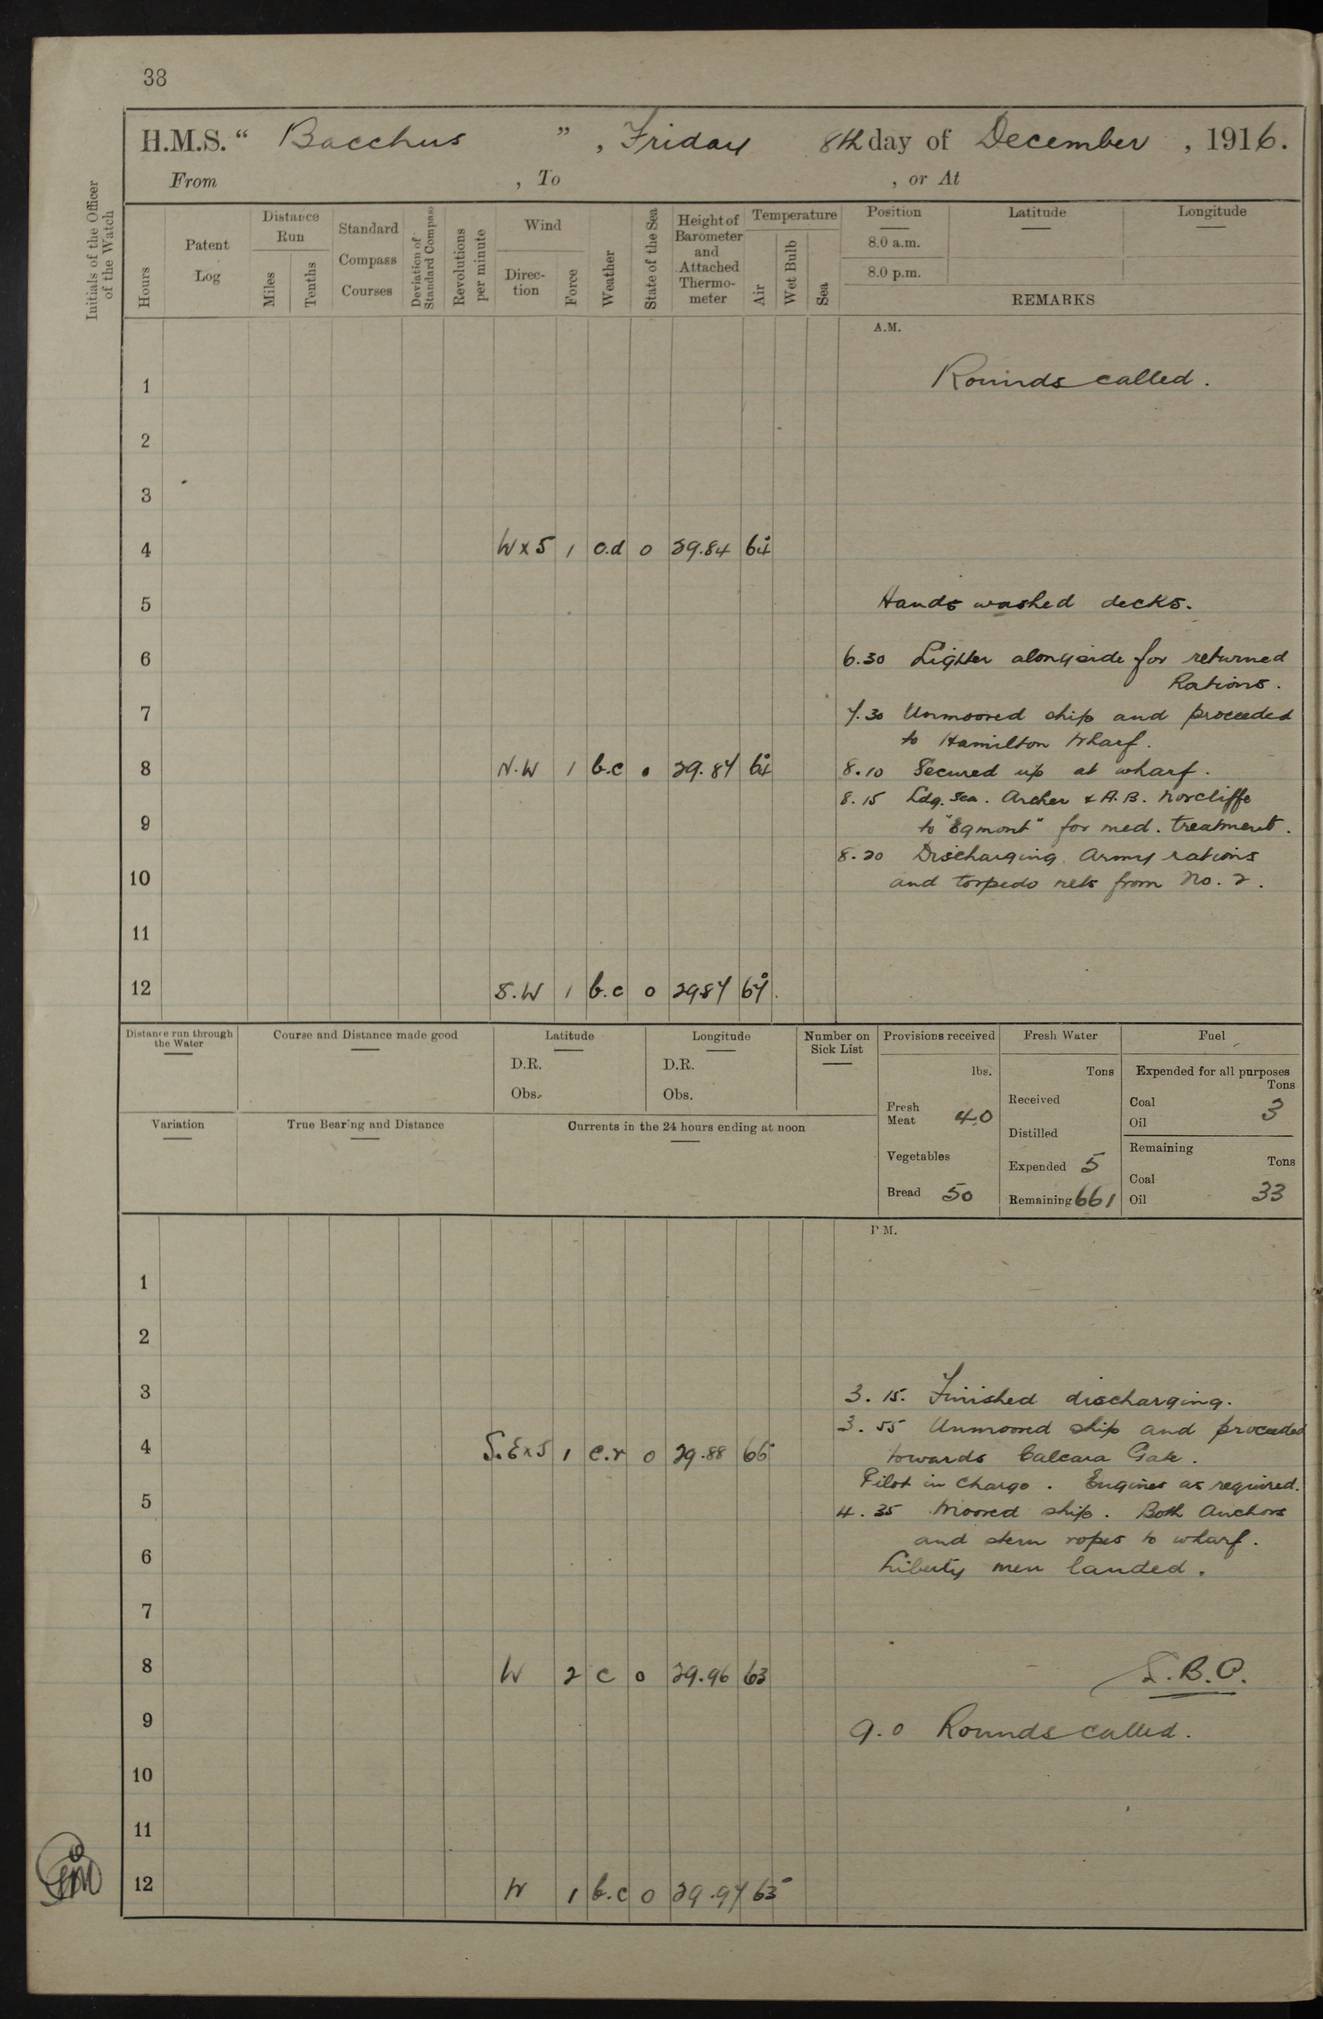 38
H.M.S. “ Bacchus ”, Friday 8th day of December, 1916.
From , To , or At
Initials of the Officer of the Watch
Hours
Patent Log
Distance Run
Miles
Tenths
Standard Compass Courses
Deviation of Standard Compass
Revolutions per minute
Wind
Direc-tion
Force
Weather
State of the Sea
Height of Barometer and Attached Thermo-meter
Temperature
Air
Wet Bulb
Sea
Position
8.0 a.m.
8.0 p.m.
Latitude
Longitude
REMARKS
A.M.
1 Rounds called.
2
3
4 W x S 1 o.d 0 29.84 64
5 Hands washed decks.
6 6.30 Lighter alongside for returned
Rations.
7 7.30 Unmoored ship and proceeded
to Hamilton Wharf.
8 N.W 1 b.c 0 29.87 64 8.10 Secured up at wharf.
8.15 Ldg. Sea. Archer & A.B. Norcliffe
9 to "Egmont" for med. treatment.
8.20 Discharging Army rations
10 and torpedo nets from No. 2.
11
12 S.W 1 b.c 0 29.87 67
Distance run through the Water
Course and Distance made good
Latitude
D.R.
Obs.
Longitude
D.R.
Obs.
Number on Sick List
Provisions received
lbs.
Fresh Meat 40
Vegetables
Bread 50
Fresh Water
Tons
Received
Distilled
Expended 5
Remaining 661
Fuel
Expended for all purposes
Tons
Coal
Oil 3
Remaining
Tons
Coal
Oil 33
Variation
True Bearing and Distance
Currents in the 24 hours ending at noon
P.M.
1
2
3 3.15. Finished discharging.
3.55 Unmoored ship and proceeded
4 S.E x S 1 c.r 0 29.88 65 towards Calcara Gate.
Pilot in Charge. Engines as required.
5 4.35 Moored ship. Both Anchors
and stern ropes to wharf.
6 Liberty men landed.
7
8 W 2 c 0 29.96 63
9 9.0 Rounds called.
10
11
12 W 1 b.c 0 29.97 63